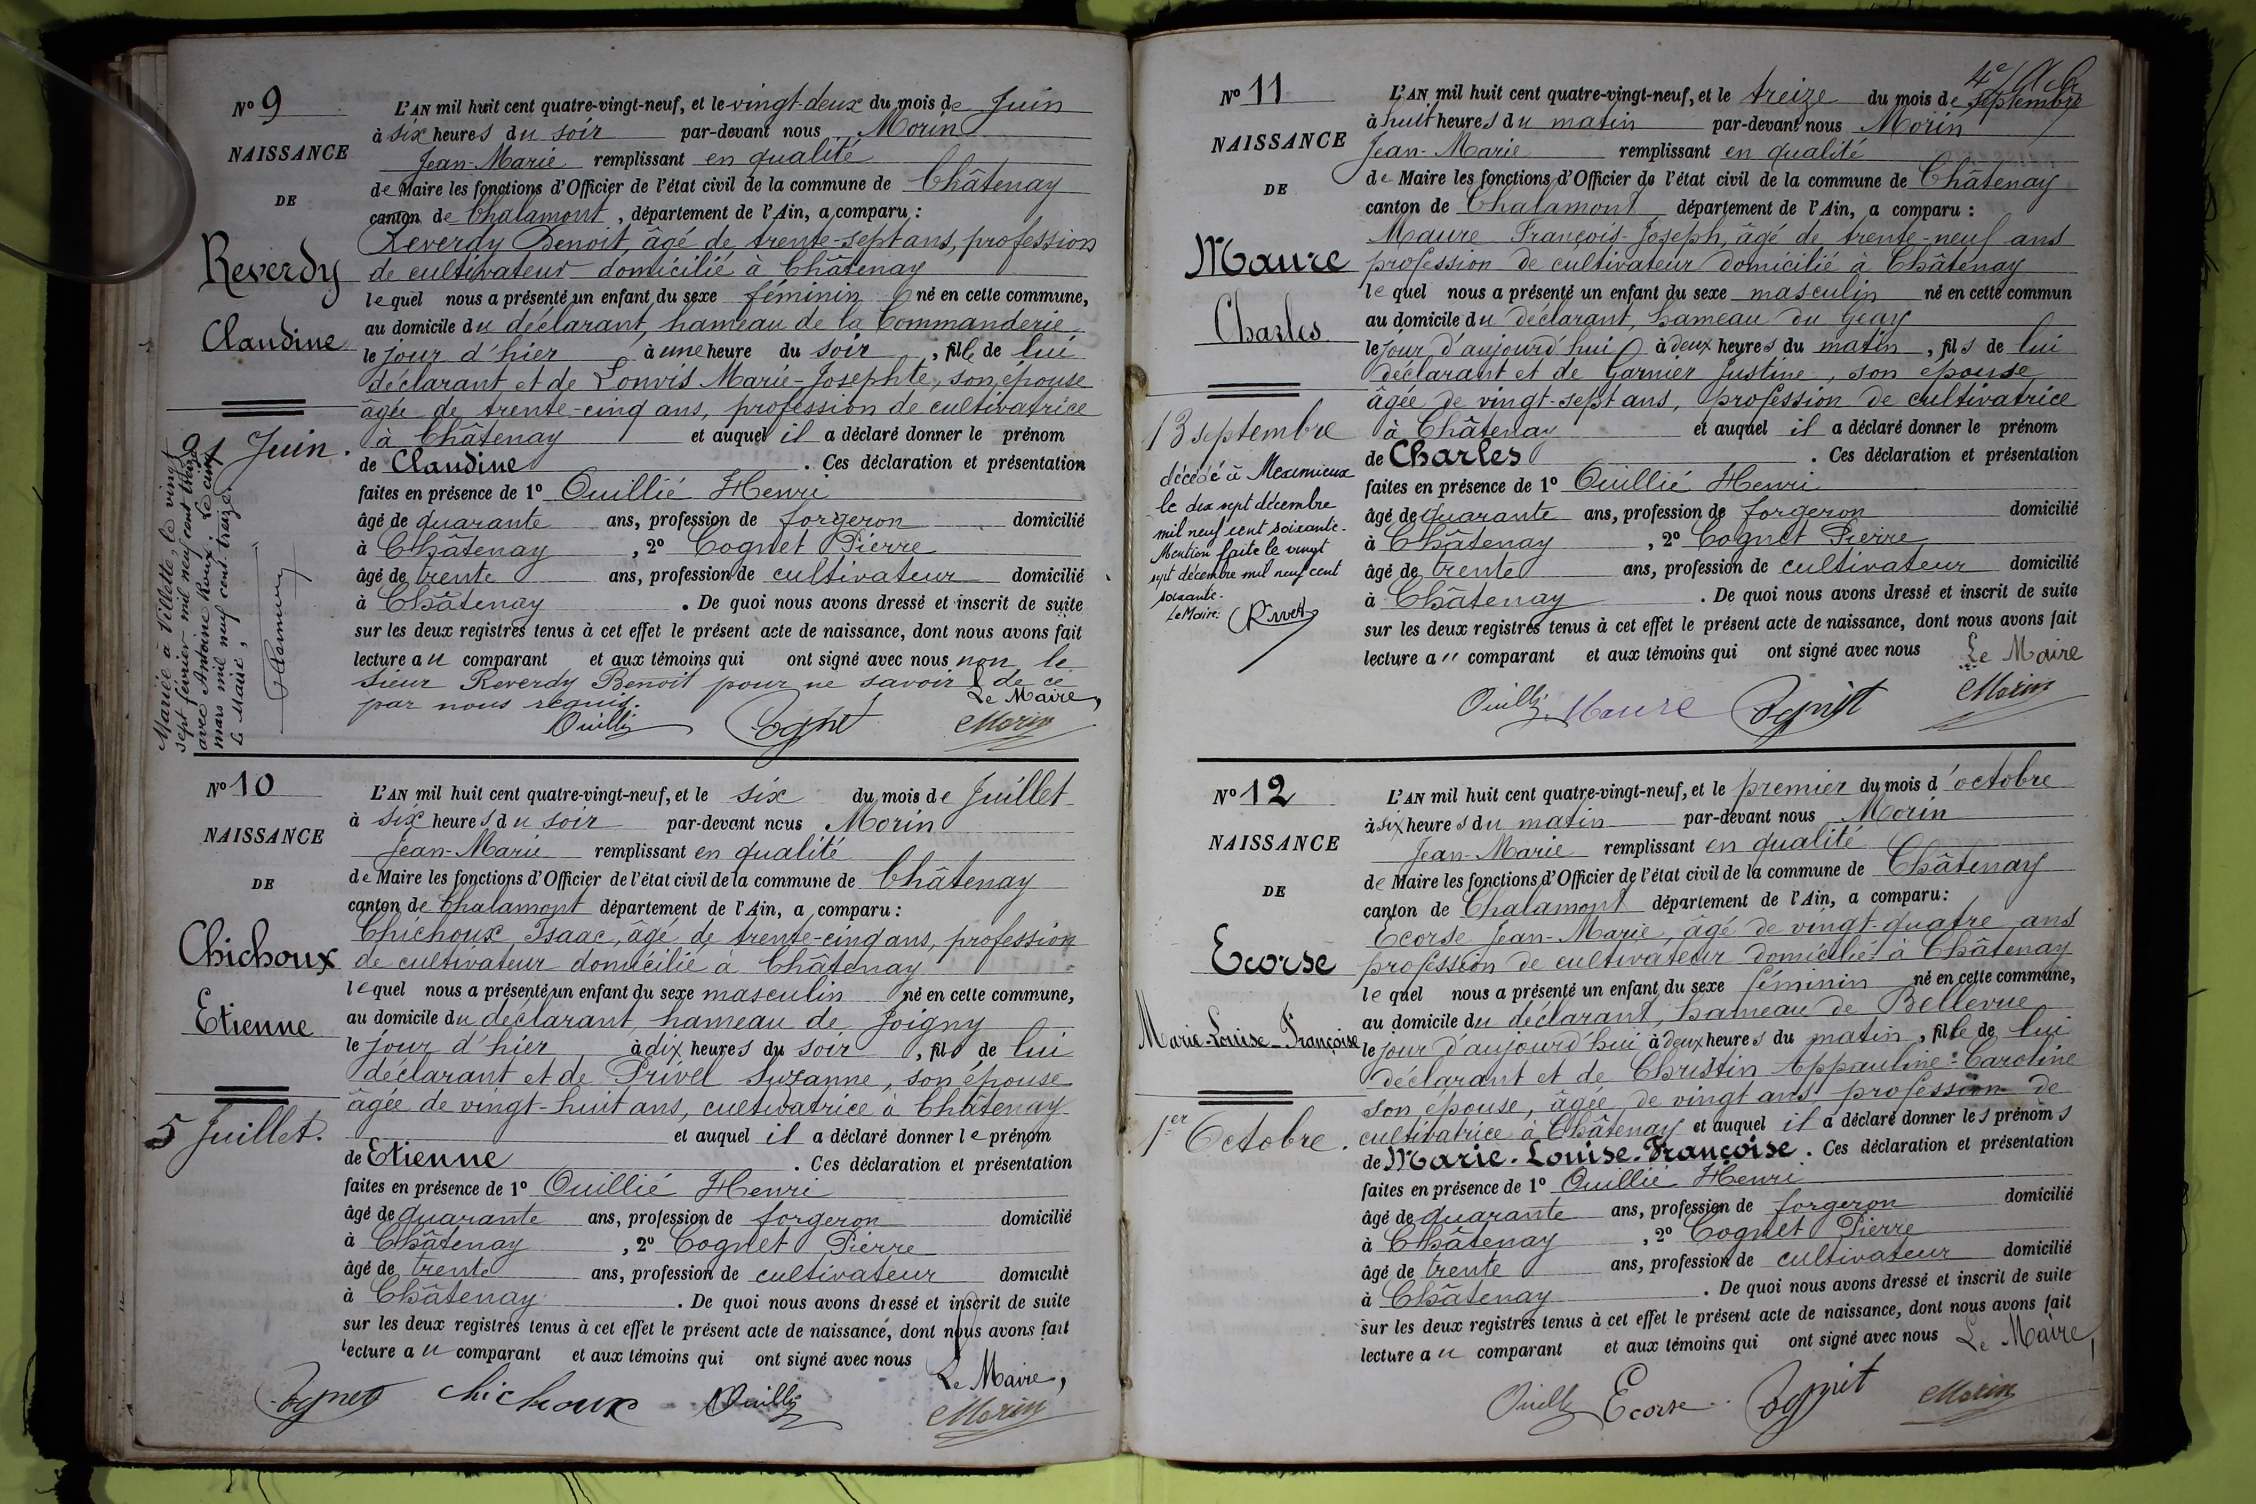 N° 9
NAISSANCE
DE
Reverdy
Claudine
21 Juin.
Mariée à Villette, le vingt
sept février mil neuf cent treize
avec Antoine Roux. Le cinq
mars mil neuf cent treize.
Le Maire,
L'AN mil huit cent quatre-vingt-neuf, et le vingt-deux du mois de Juin
à six heures du soir par-devant nous Morin
Jean-Marie remplissant en qualité
de Maire les fonctions d'Officier de l'état civil de la commune de Châtenay
canton de Chalamont, département de l'Ain, a comparu :
Reverdy Benoit, âgé de trente-sept ans, profession
de cultivateur domicilié à Châtenay
lequel nous a présenté un enfant du sexe féminin né en cette commune,
au domicile du déclarant, hameau de la Commanderie
le jour d'hier à une heure du soir, fille de lui
déclarant et de Louvis Marie-Josephte, son épouse
âgée de trente-cinq ans, profession de cultivatrice
à Châtenay et auquel il a déclaré donner le prénom
de Claudine. Ces déclaration et présentation
faites en présence de 1° Ouillié Henri
âgé de quarante ans, profession de forgeron domicilié
à Châtenay, 2° Cognet Pierre
âgé de trente ans, profession de cultivateur domicilié
à Châtenay. De quoi nous avons dressé et inscrit de suite
sur les deux registres tenus à cet effet le présent acte de naissance, dont nous avons fait
lecture au comparant et aux témoins qui ont signé avec nous non le
sieur Reverdy Benoit pour ne savoir de ce
par nous requis.
Le Maire,
Ouillié Cognet Morin
N° 10
NAISSANCE
DE
Chichoux
Etienne
5 Juillet.
L'AN mil huit cent quatre-vingt-neuf, et le six du mois de Juillet
à six heures du soir par-devant nous Morin
Jean-Marie remplissant en qualité
de Maire les fonctions d'Officier de l'état civil de la commune de Châtenay
canton de Chalamont département de l'Ain, a comparu :
Chichoux Isaac, âgé de trente-cinq ans, profession
de cultivateur domicilié à Châtenay
lequel nous a présenté un enfant du sexe masculin né en cette commune,
au domicile du déclarant, hameau de Joigny
le jour d'hier à dix heures du soir, fils de lui
déclarant et de Privel Suzanne, son épouse
âgée de vingt-huit ans, cultivatrice à Châtenay
et auquel il a déclaré donner le prénom
de Etienne. Ces déclaration et présentation
faites en présence de 1° Ouillié Henri
âgé de quarante ans, profession de forgeron domicilié
à Châtenay, 2° Cognet Pierre
âgé de trente ans, profession de cultivateur domicilié
à Châtenay. De quoi nous avons dressé et inscrit de suite
sur les deux registres tenus à cet effet le présent acte de naissance, dont nous avons fait
lecture au comparant et aux témoins qui ont signé avec nous
Le Maire,
Cognet Chichoux Ouillié Morin
N° 11
NAISSANCE
DE
Maure
Charles
13 septembre
décédé à Meximieux
le dix sept décembre
mil neuf cent soixante.
Mention faite le vingt
sept décembre mil neuf cent
soixante.
Le Maire:
L'AN mil huit cent quatre-vingt-neuf, et le treize du mois de septembre
à huit heures du matin par-devant nous Morin
Jean-Marie remplissant en qualité
de Maire les fonctions d'Officier de l'état civil de la commune de Châtenay
canton de Chalamont département de l'Ain, a comparu :
Maure François-Joseph, âgé de trente-neuf ans
profession de cultivateur domicilié à Châtenay
lequel nous a présenté un enfant du sexe masculin né en cette commun
au domicile du déclarant, hameau du Geay
le jour d'aujourd'hui à deux heures du matin, fils de lui
déclarant et de Garnier Justine, son épouse
âgée de vingt-sept ans, profession de cultivatrice
à Châtenay et auquel il a déclaré donner le prénom
de Charles. Ces déclaration et présentation
faites en présence de 1° Ouillié Henri
âgé de quarante ans, profession de forgeron domicilié
à Châtenay, 2° Cognet Pierre
âgé de trente ans, profession de cultivateur domicilié
à Châtenay. De quoi nous avons dressé et inscrit de suite
sur les deux registres tenus à cet effet le présent acte de naissance, dont nous avons fait
lecture au comparant et aux témoins qui ont signé avec nous Le Maire
Ouillié Maure Cognet Morin
N° 12
NAISSANCE
DE
Ecorse
Marie-Louise-Françoise
1er Octobre.
L'AN mil huit cent quatre-vingt-neuf, et le premier du mois d'octobre
à six heures du matin par-devant nous Morin
Jean-Marie remplissant en qualité
de Maire les fonctions d'Officier de l'état civil de la commune de Châtenay
canton de Chalamont département de l'Ain, a comparu :
Ecorse Jean-Marie, âgé de vingt-quatre ans
profession de cultivateur domicilié à Châtenay
lequel nous a présenté un enfant du sexe féminin né en cette commune,
au domicile du déclarant, hameau de Bellevue
le jour d'aujourd'hui à deux heures du matin, fille de lui
déclarant et de Christin Appauline-Caroline
son épouse, âgée de vingt ans profession de
cultivatrice à Châtenay et auquel il a déclaré donner les prénoms
de Marie-Louise-Françoise. Ces déclaration et présentation
faites en présence de 1° Ouillié Henri
âgé de quarante ans, profession de forgeron domicilié
à Châtenay, 2° Cognet Pierre
âgé de trente ans, profession de cultivateur domicilié
à Châtenay. De quoi nous avons dressé et inscrit de suite
sur les deux registres tenus à cet effet le présent acte de naissance, dont nous avons fait
lecture au comparant et aux témoins qui ont signé avec nous Le Maire,
Ouillié Ecorse Cognet Morin